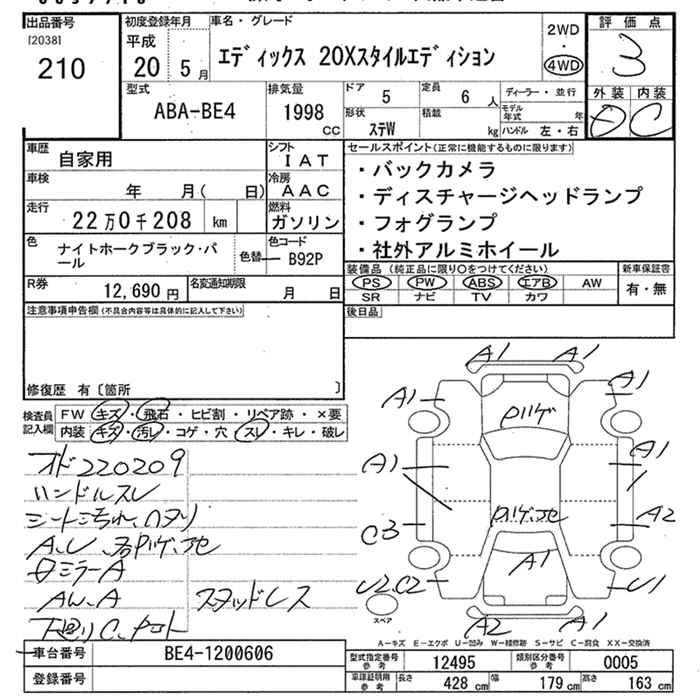 出品番号
[2038]
210
初度登録年月
平成
20 5月
車名・グレード
エディックス 20Xスタイルエディション
2WD
・
4WD
評価点
3
外装 内装
C
型式
ABA-BE4
排気量
1998
CC
ドア
5
定員
6 人
形状
ステW
積載
kg
ディーラー・並行
モデル年式 年
ハンドル 左・右
車歴
自家用
シフト
IAT
車検
年 月( 日)
冷房
AAC
走行
22万0千208 km
燃料
ガソリン
色
ナイトホークブラック・パール
色替
色コード
B92P
R券
12,690 円
名変通知期限
月 日
セールスポイント(正常に機能するものに限ります)
・バックカメラ
・ディスチャージヘッドランプ
・フォグランプ
・社外アルミホイール
装備品(純正品に限り○をつけてください)
PS PW ABS エアB AW
SR ナビ TV カワ
新車保証書
有・無
後日品
注意事項申告欄(不具合内容等は具体的に記入して下さい)
修復歴 有〔箇所 〕
検査員記入欄
FW キズ・飛石・ヒビ割・リペア跡・×要
内装 キズ・汚レ・コゲ・穴・スレ・キレ・破レ
オド220209
ハンドルスレ
シート
ミラーA
AW.A
スタッドレス
A1 A1
A1 A1
A1 A1
C3 A2
A1
U2.C2 U1
A2 A1
スペア
A-キズ E-エクボ U-凹み W-補修跡 S-サビ C-腐食 XX-交換済
車台番号
BE4-1200606
登録番号
型式指定番号 参考
12495
類別区分番号 参考
0005
車検証明用 参考
長さ 428 cm
幅 179 cm
高さ 163 cm